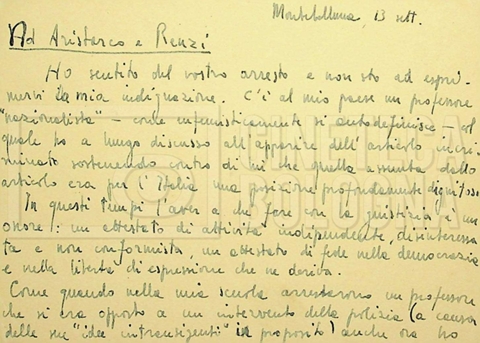 Montebelluna, 13 sett.
Ad Aristarco e Renzi
Ho sentito del vostro arresto e non sto ad espri-
mervi la mia indignazione. C'è al mio paese un professore
"nazionalista" – come eufemisticamente si autodefinisce – col
quale ho a lungo discusso all'apparire dell'articolo incri-
minato sostenendo contro di lui che quella assunta dallo
articolo era per l'Italia una posizione profondamente dignitosa
In questi tempi l'aver a che fare con la giustizia è un
onore: un attestato di attività indipendente, disinteressa-
ta e non conformista, un attestato di fede nella democrazia
e nella libertà di espressione che ne deriva.
Come quando nella mia scuola arrestarono un professore
che si era opposto a un intervento della polizia (a causa
delle sue "idee intransigenti" in proposito) anche ora ho
CINETECA
BOLOGNA